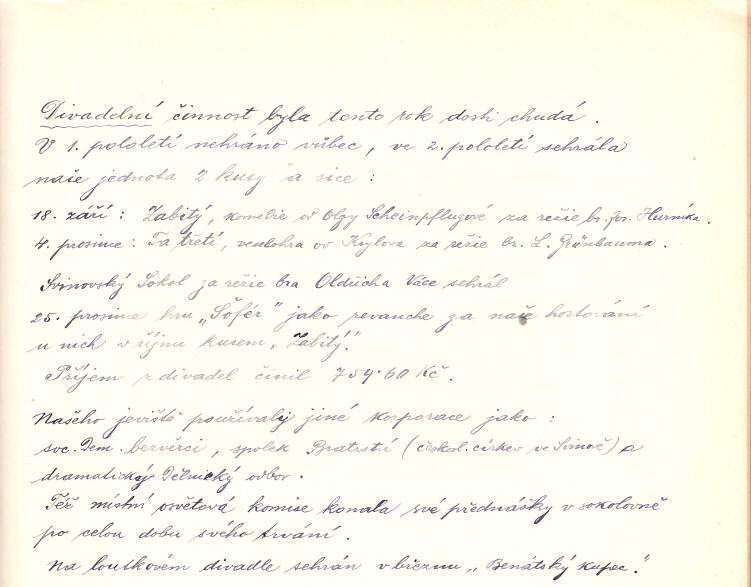 Divadelní činnost byla tento rok dosti chudá.
V 1. pololetí nehráno vůbec, ve 2. pololetí sehrála
naše jednota 2 kusy a sice:
18. září: Zabitý, komedie od Olgy Scheinpflugové za režie br. Jos. Hurníka.
4. prosince: Ta třetí, veselohra od Krylova za režie br. L. Grünbauma.
Svinovský Sokol za režie bra Oldřicha Váce sehrál
25. prosince hru „Šofér" jako revanche za naše hostování
u nich v říjnu kusem „Zabitý".
Příjem z divadel činil 759·60 Kč.
Našeho jeviště používaly jiné korporace jako:
soc. Dem. bezvěrci, spolek Bratrství (českosl. církev ve Svinově) a
dramatický Dělnický odbor.
Též místní osvětová komise konala své přednášky v sokolovně
po celou dobu svého trvání.
Na loutkovém divadle sehrán v březnu „Benátský kupec."